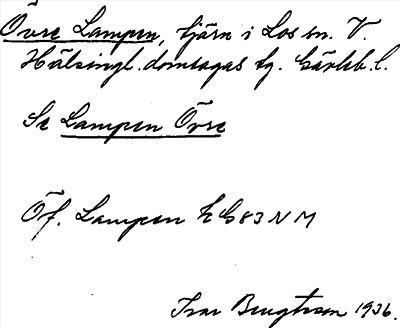 Övre Lampen, tjärn i Los sn. V.
Hälsingl. domsagas tg. Gävleb. l.
Se Lampen Övre
Öf. Lampen k G 83 N M
Ivar Bengtsson 1936.